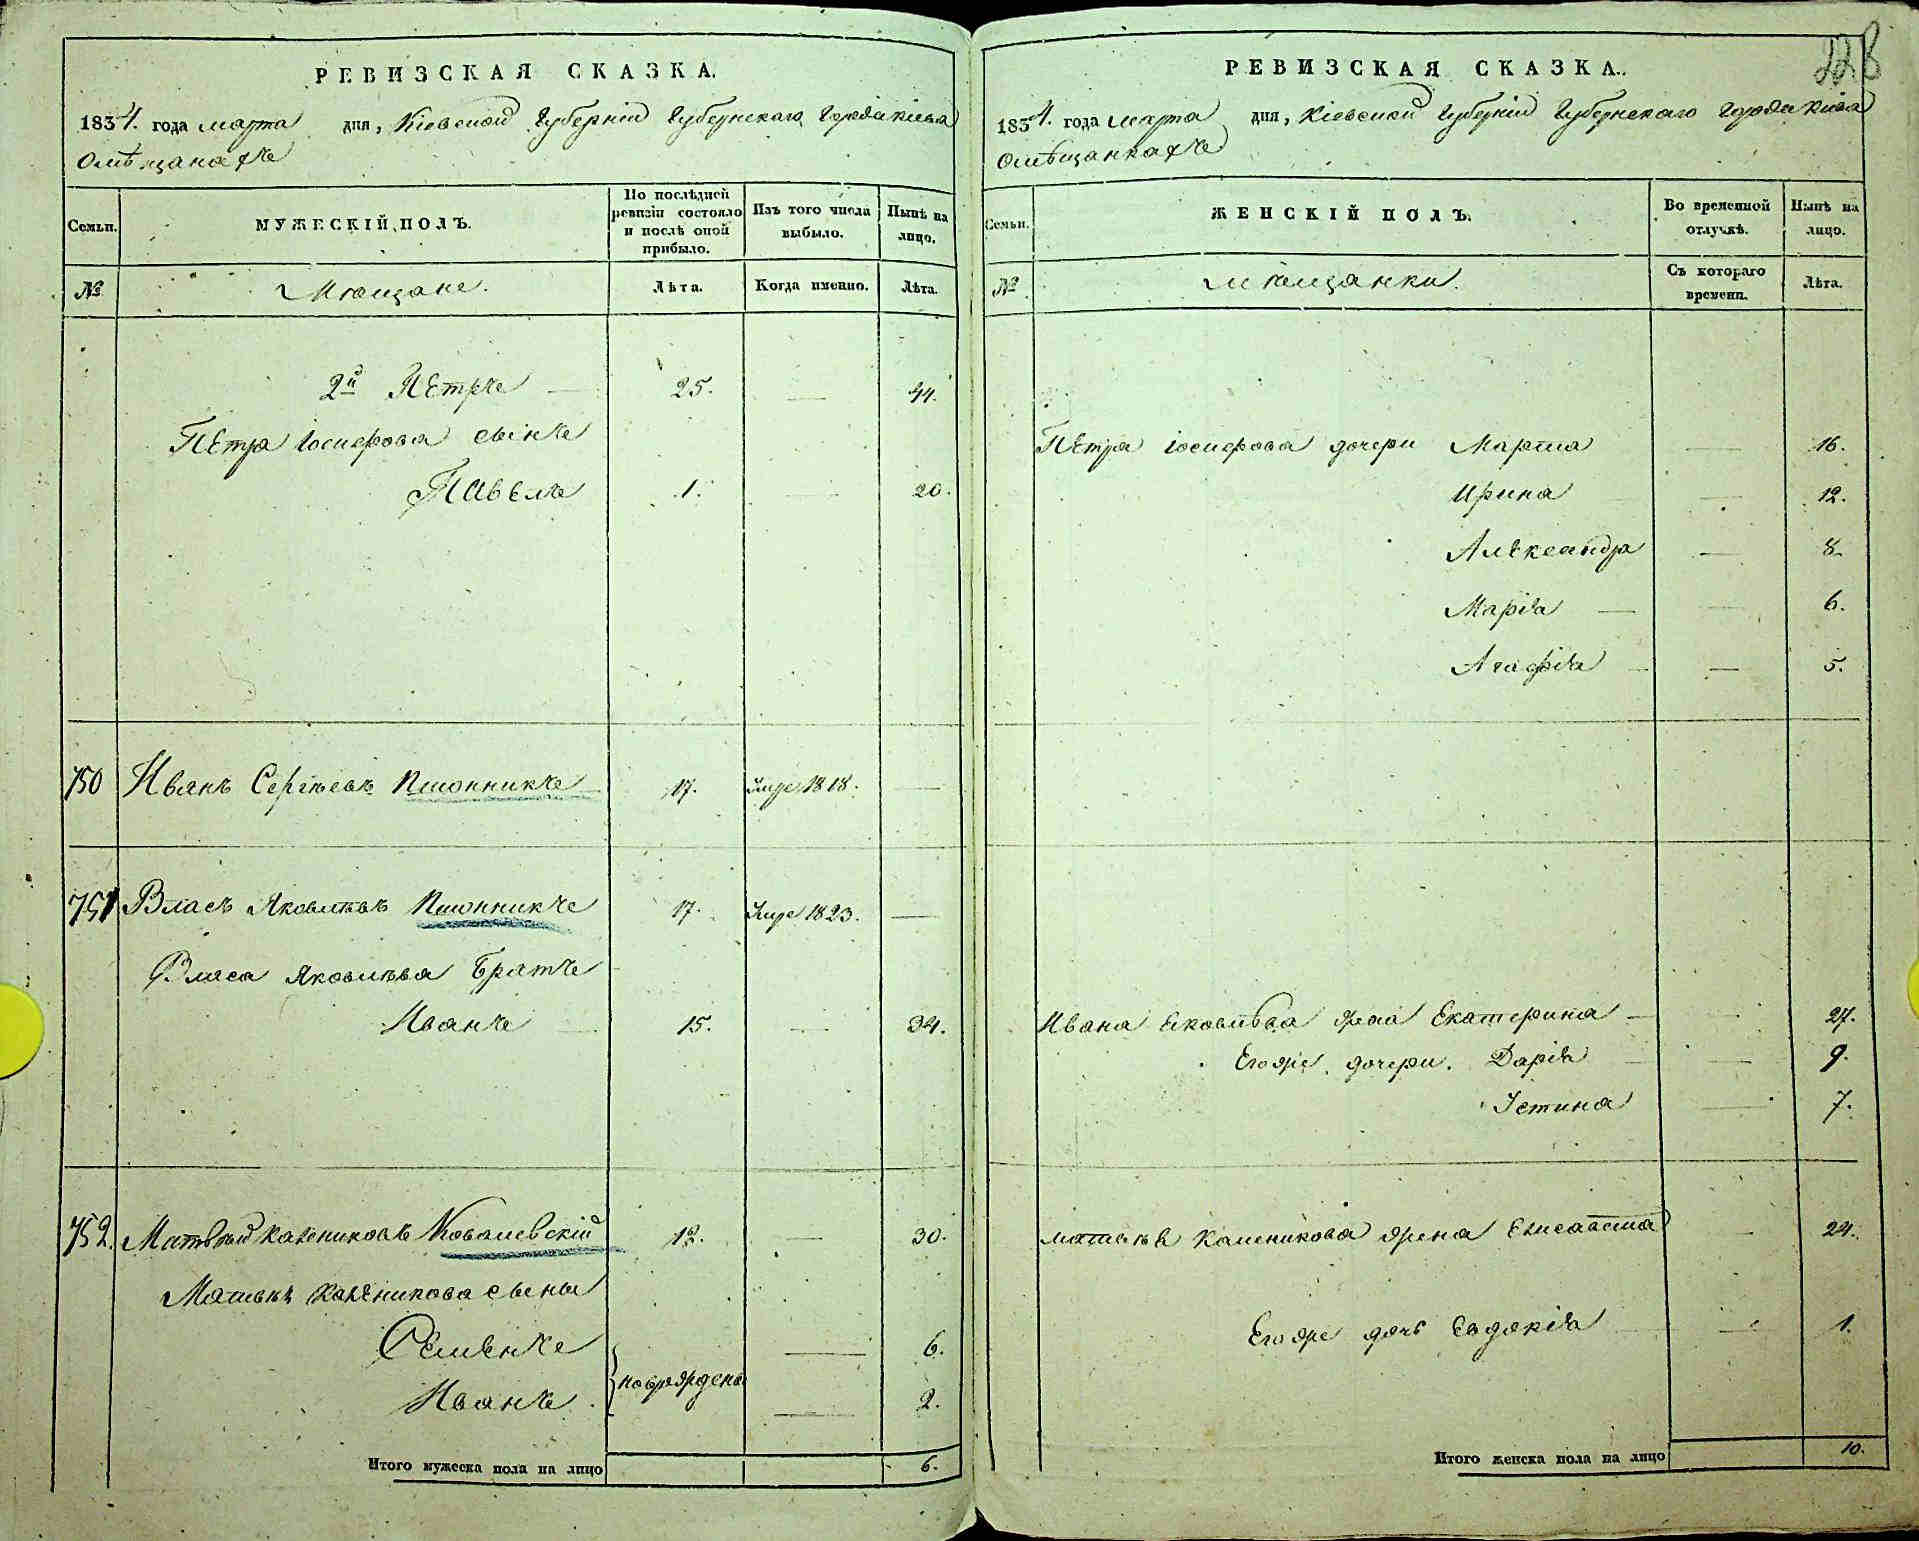 228
РЕВИЗСКАЯ СКАЗКА.
1834. года марта дня, Кіевской Губерніи Губернскаго Города Кіева
О мѣщанахъ
Семьи.
МУЖЕСКІЙ ПОЛЪ.
По послѣдней ревизіи состояло и послѣ оной прибыло.
Изъ того числа выбыло.
Нынѣ на лицо.
№
Мѣщане.
Лѣта.
Когда именно.
Лѣта.
2й Петръ — 25. — 44.
Петра Іосифова сынъ
Павелъ 1. — 20.
750 Иванъ Сергѣевъ Пшонникъ 17. 1818. —
751 Власъ Яковлевъ Пшонникъ 17. 1823. —
Власа Яковлева Братъ
Иванъ 15. — 34.
752. Матвѣй Калениковъ Ковалевскій 12. — 30.
Матвѣя Каленикова сыны
Семенъ — 6.
новорождены
Иванъ — 2.
Итого мужеска пола на лицо 6.
РЕВИЗСКАЯ СКАЗКА.
1834. года Марта дня, Кіевской Губерніи Губернскаго Города Кіева
О мѣщанкахъ
Семьи.
ЖЕНСКІЙ ПОЛЪ.
Во временной отлучкѣ.
Нынѣ на лицо.
№
Мѣщанки.
Съ котораго времени.
Лѣта.
Петра Іосифова дочери Марфа — 16.
Ирина — 12.
Александра — 8
Марія — 6.
Агафія — 5.
Ивана Яковлева жена Екатерина — 27.
Его же дочери. Дарія — 9.
Устина — 7.
Матвѣя Каленикова жена Елисавета — 24.
Его же дочь Евдокія — 1.
Итого женска пола на лицо 10.